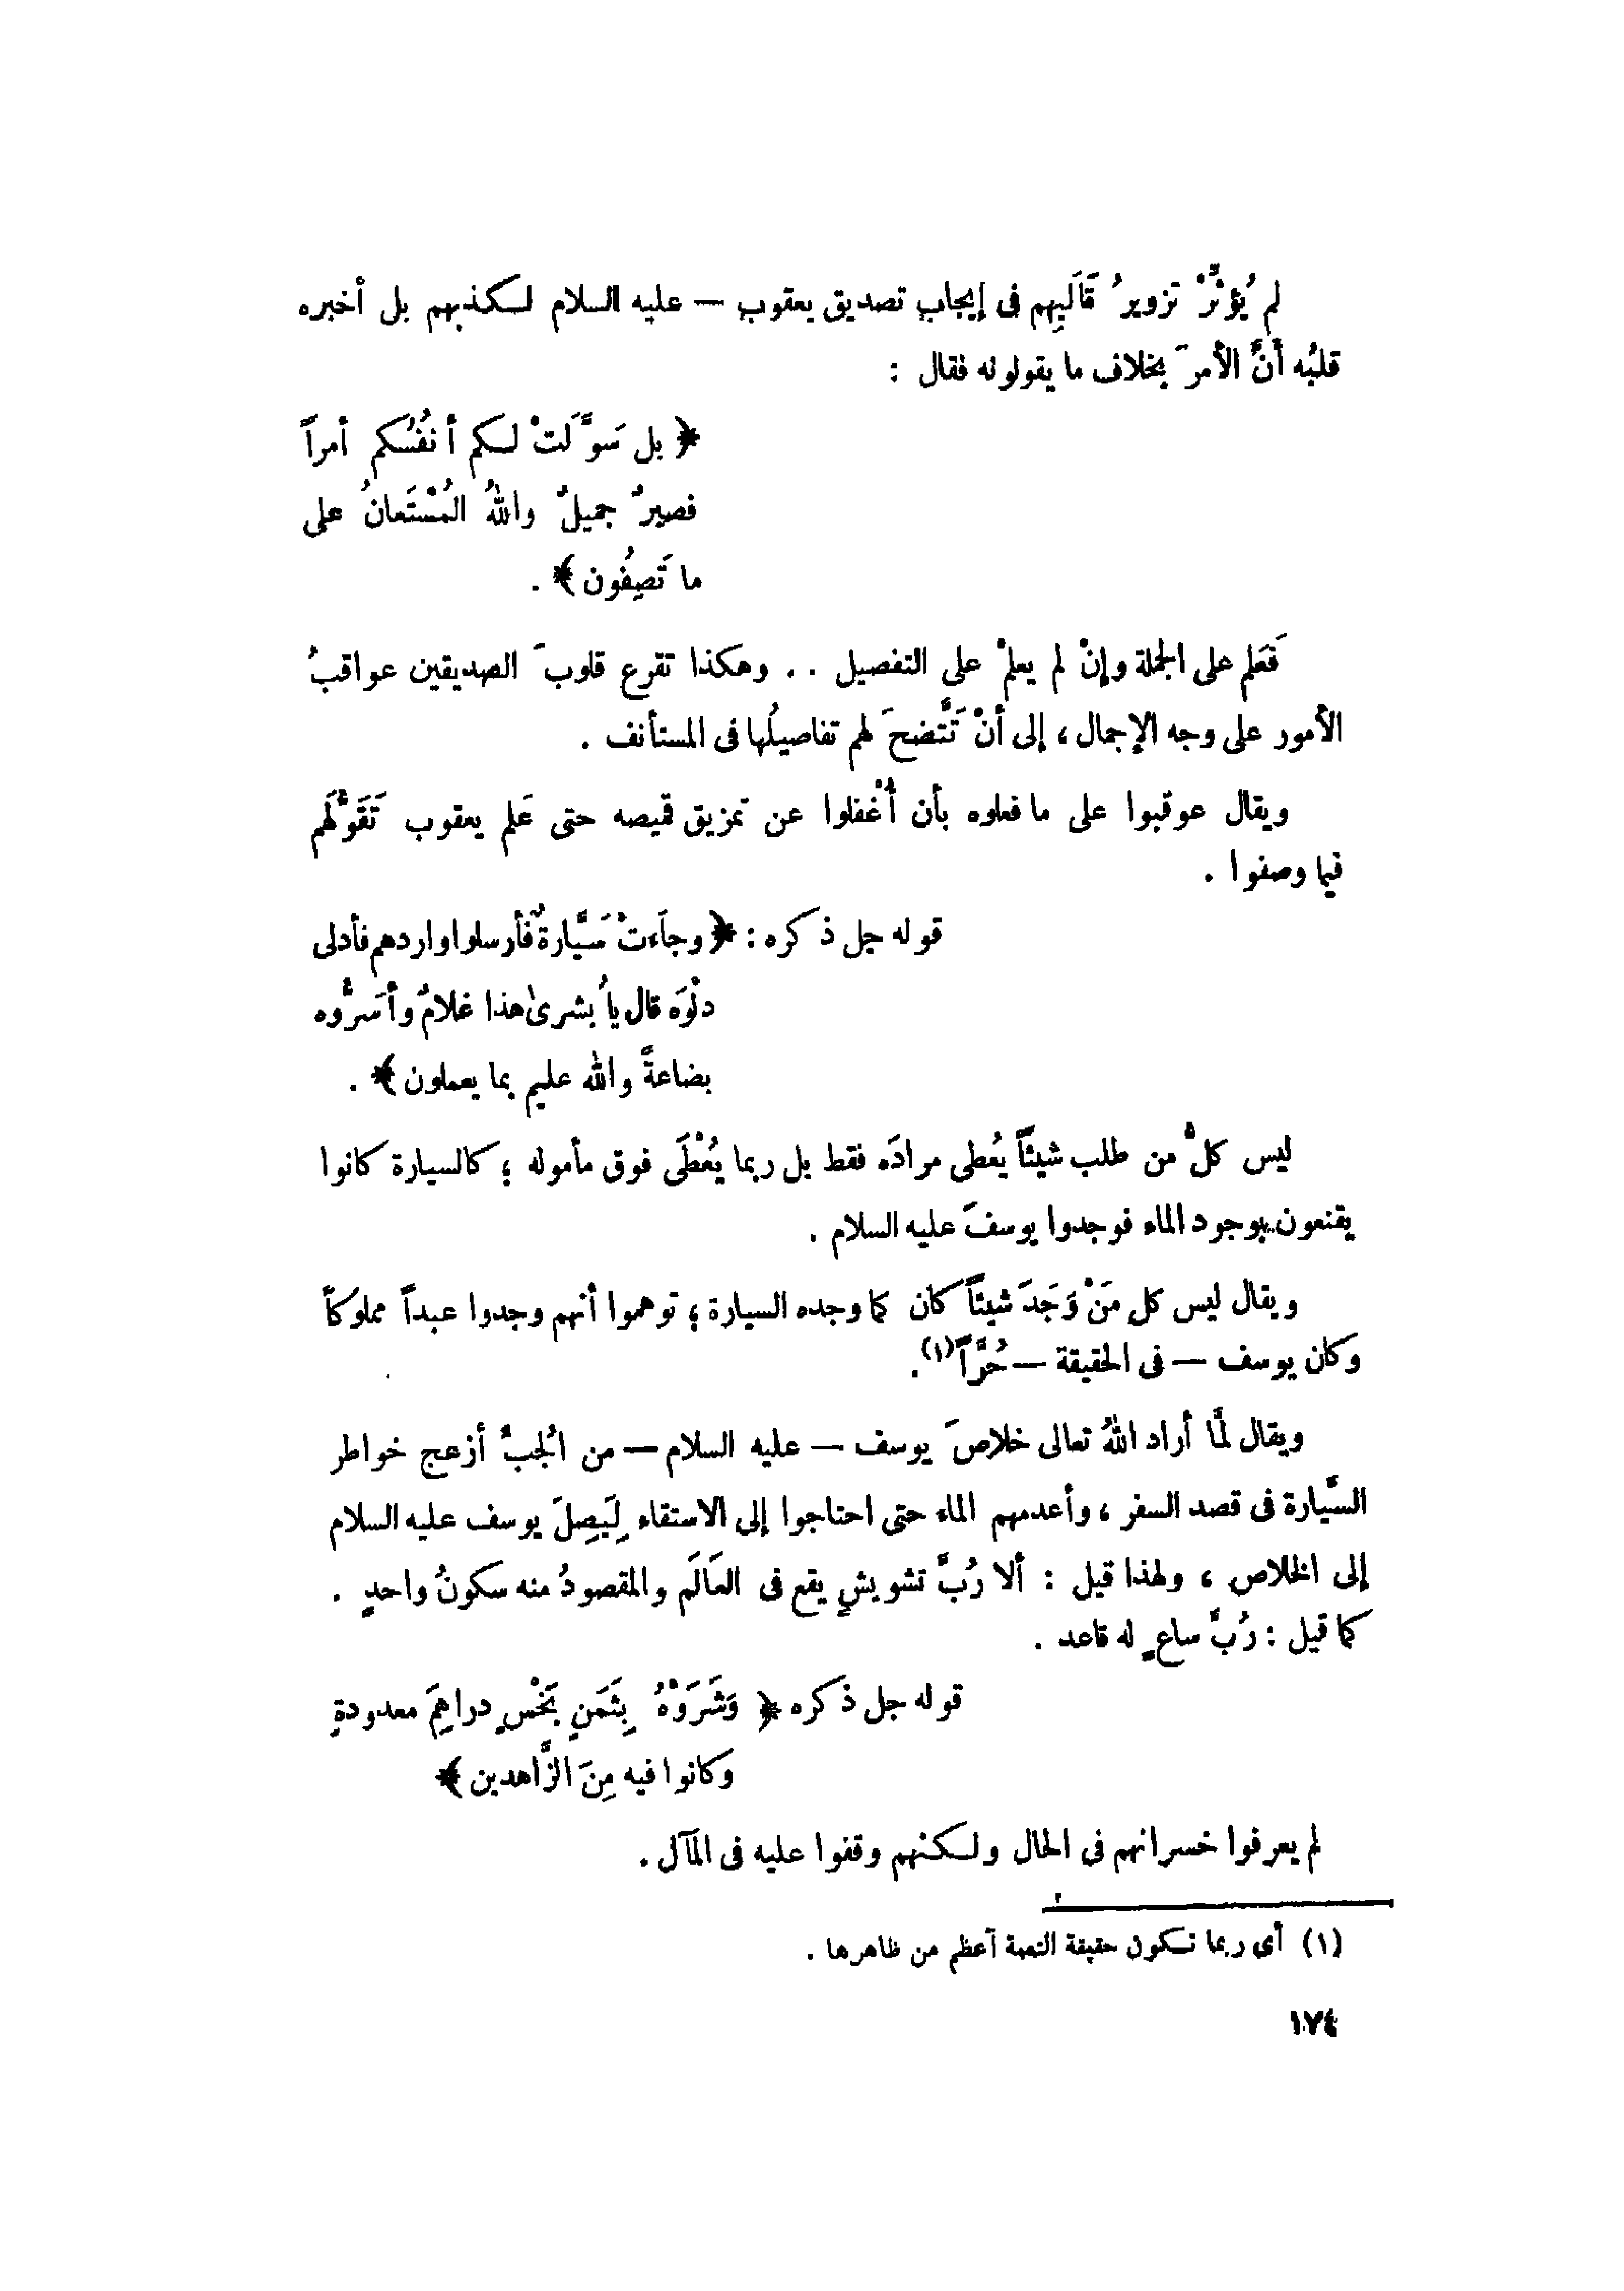 لم يُؤَثِّرْ تزويرُ قَالَبِهم فى إيجاب تصديق يعقوب — عليه السلام لكذبهم بل أخبره
قلبُه أَنَّ الأمرَ بخلاف ما يقولونه فقال :
﴿ بل سَوَّلَتْ لكم أنفُسُكم أمراً
فصبرٌ جميلٌ واللهُ المُسْتَعانُ على
ما تَصِفُون ﴾ .
فَعَلم على الجملة وإنْ لم يعلمْ على التفصيل . . وهكذا تقرع قلوبَ الصديقين عواقبُ
الأمور على وجه الإجمال ، إلى أنْ تَتَّضحَ لهم تفاصيلُها فى المستأنف .
ويقال عوقبوا على ما فعلوه بأن أُغْفلوا عن تمزيق قميصه حتى عَلم يعقوب تَقَوُّلَهم
فيما وصفوا .
قوله جل ذكره : ﴿ وجاَءتْ سَيَّارةٌ فأرسلوا واردهم فأدلى
دلْوَه قال يا بُشرىٰ هذا غلامٌ وأسَرُّوه
بضاعةً والله عليم بما يعملون ﴾ .
ليس كلُّ من طلب شيئاً يُعطى مرادَه فقط بل ربما يُعْطَى فوق مأموله ؛ كالسيارة كانوا
يقنعون بوجود الماء فوجدوا يوسفَ عليه السلام .
ويقال ليس كل مَنْ وَجَدَ شيئاً كان كما وجده السيارة ؛ توهموا أنهم وجدوا عبداً مملوكاً
وكان يوسف — فى الحقيقة — حُرَّاً(١).
ويقال لمَّا أراد اللهُ تعالى خلاصَ يوسف — عليه السلام — من الجُبِّ أزعج خواطر
السَّيارة فى قصد السفر ، وأعدمهم الماء حتى احتاجوا إلى الاستقاء لِيَصِلَ يوسف عليه السلام
إلى الخلاص ، ولهذا قيل : ألا رُبَّ تشويشٍ يقع فى العَالَم والمقصودُ منه سكونُ واحدٍ .
كما قيل : رُبَّ ساعٍ له قاعد .
قوله جل ذكره ﴿ وَشَرَوْهُ بِثَمَنٍ بَخْسٍ دراهِمَ معدودةٍ
وكانوا فيه مِنَ الزَّاهدين ﴾
لم يعرفوا خسرانهم فى الحال ولكنهم وقفوا عليه فى المآل .
(١) أى ربما تكون حقيقة النعمة أعظم من ظاهرها .
١٧٤